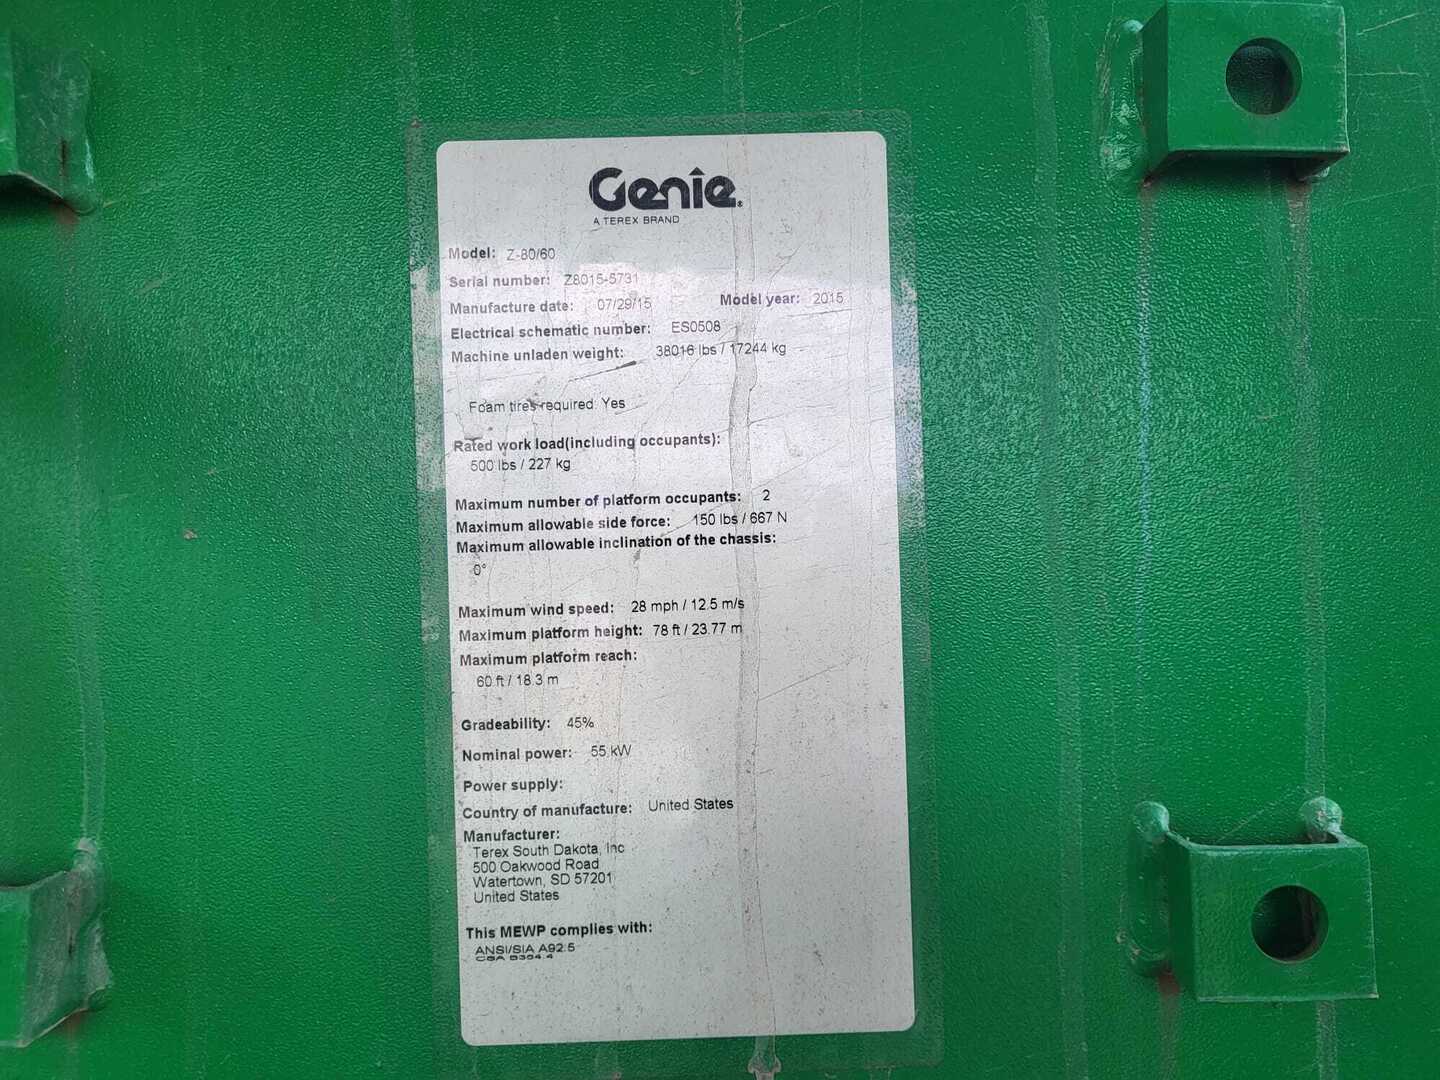 Genie
A TEREX BRAND
Model: Z-80/60
Serial number: Z8015-5731
Manufacture date: 07/29/15 Model year: 2015
Electrical schematic number: ES0508
Machine unladen weight: 38016 lbs / 17244 kg
Foam tires required: Yes
Rated work load(including occupants):
500 lbs / 227 kg
Maximum number of platform occupants: 2
Maximum allowable side force: 150 lbs / 667 N
Maximum allowable inclination of the chassis:
0°
Maximum wind speed: 28 mph / 12.5 m/s
Maximum platform height: 78 ft / 23.77 m
Maximum platform reach:
60 ft / 18.3 m
Gradeability: 45%
Nominal power: 55 kW
Power supply:
Country of manufacture: United States
Manufacturer:
Terex South Dakota, Inc
500 Oakwood Road
Watertown, SD 57201
United States
This MEWP complies with:
ANSI/SIA A92.5
CSA B354.4